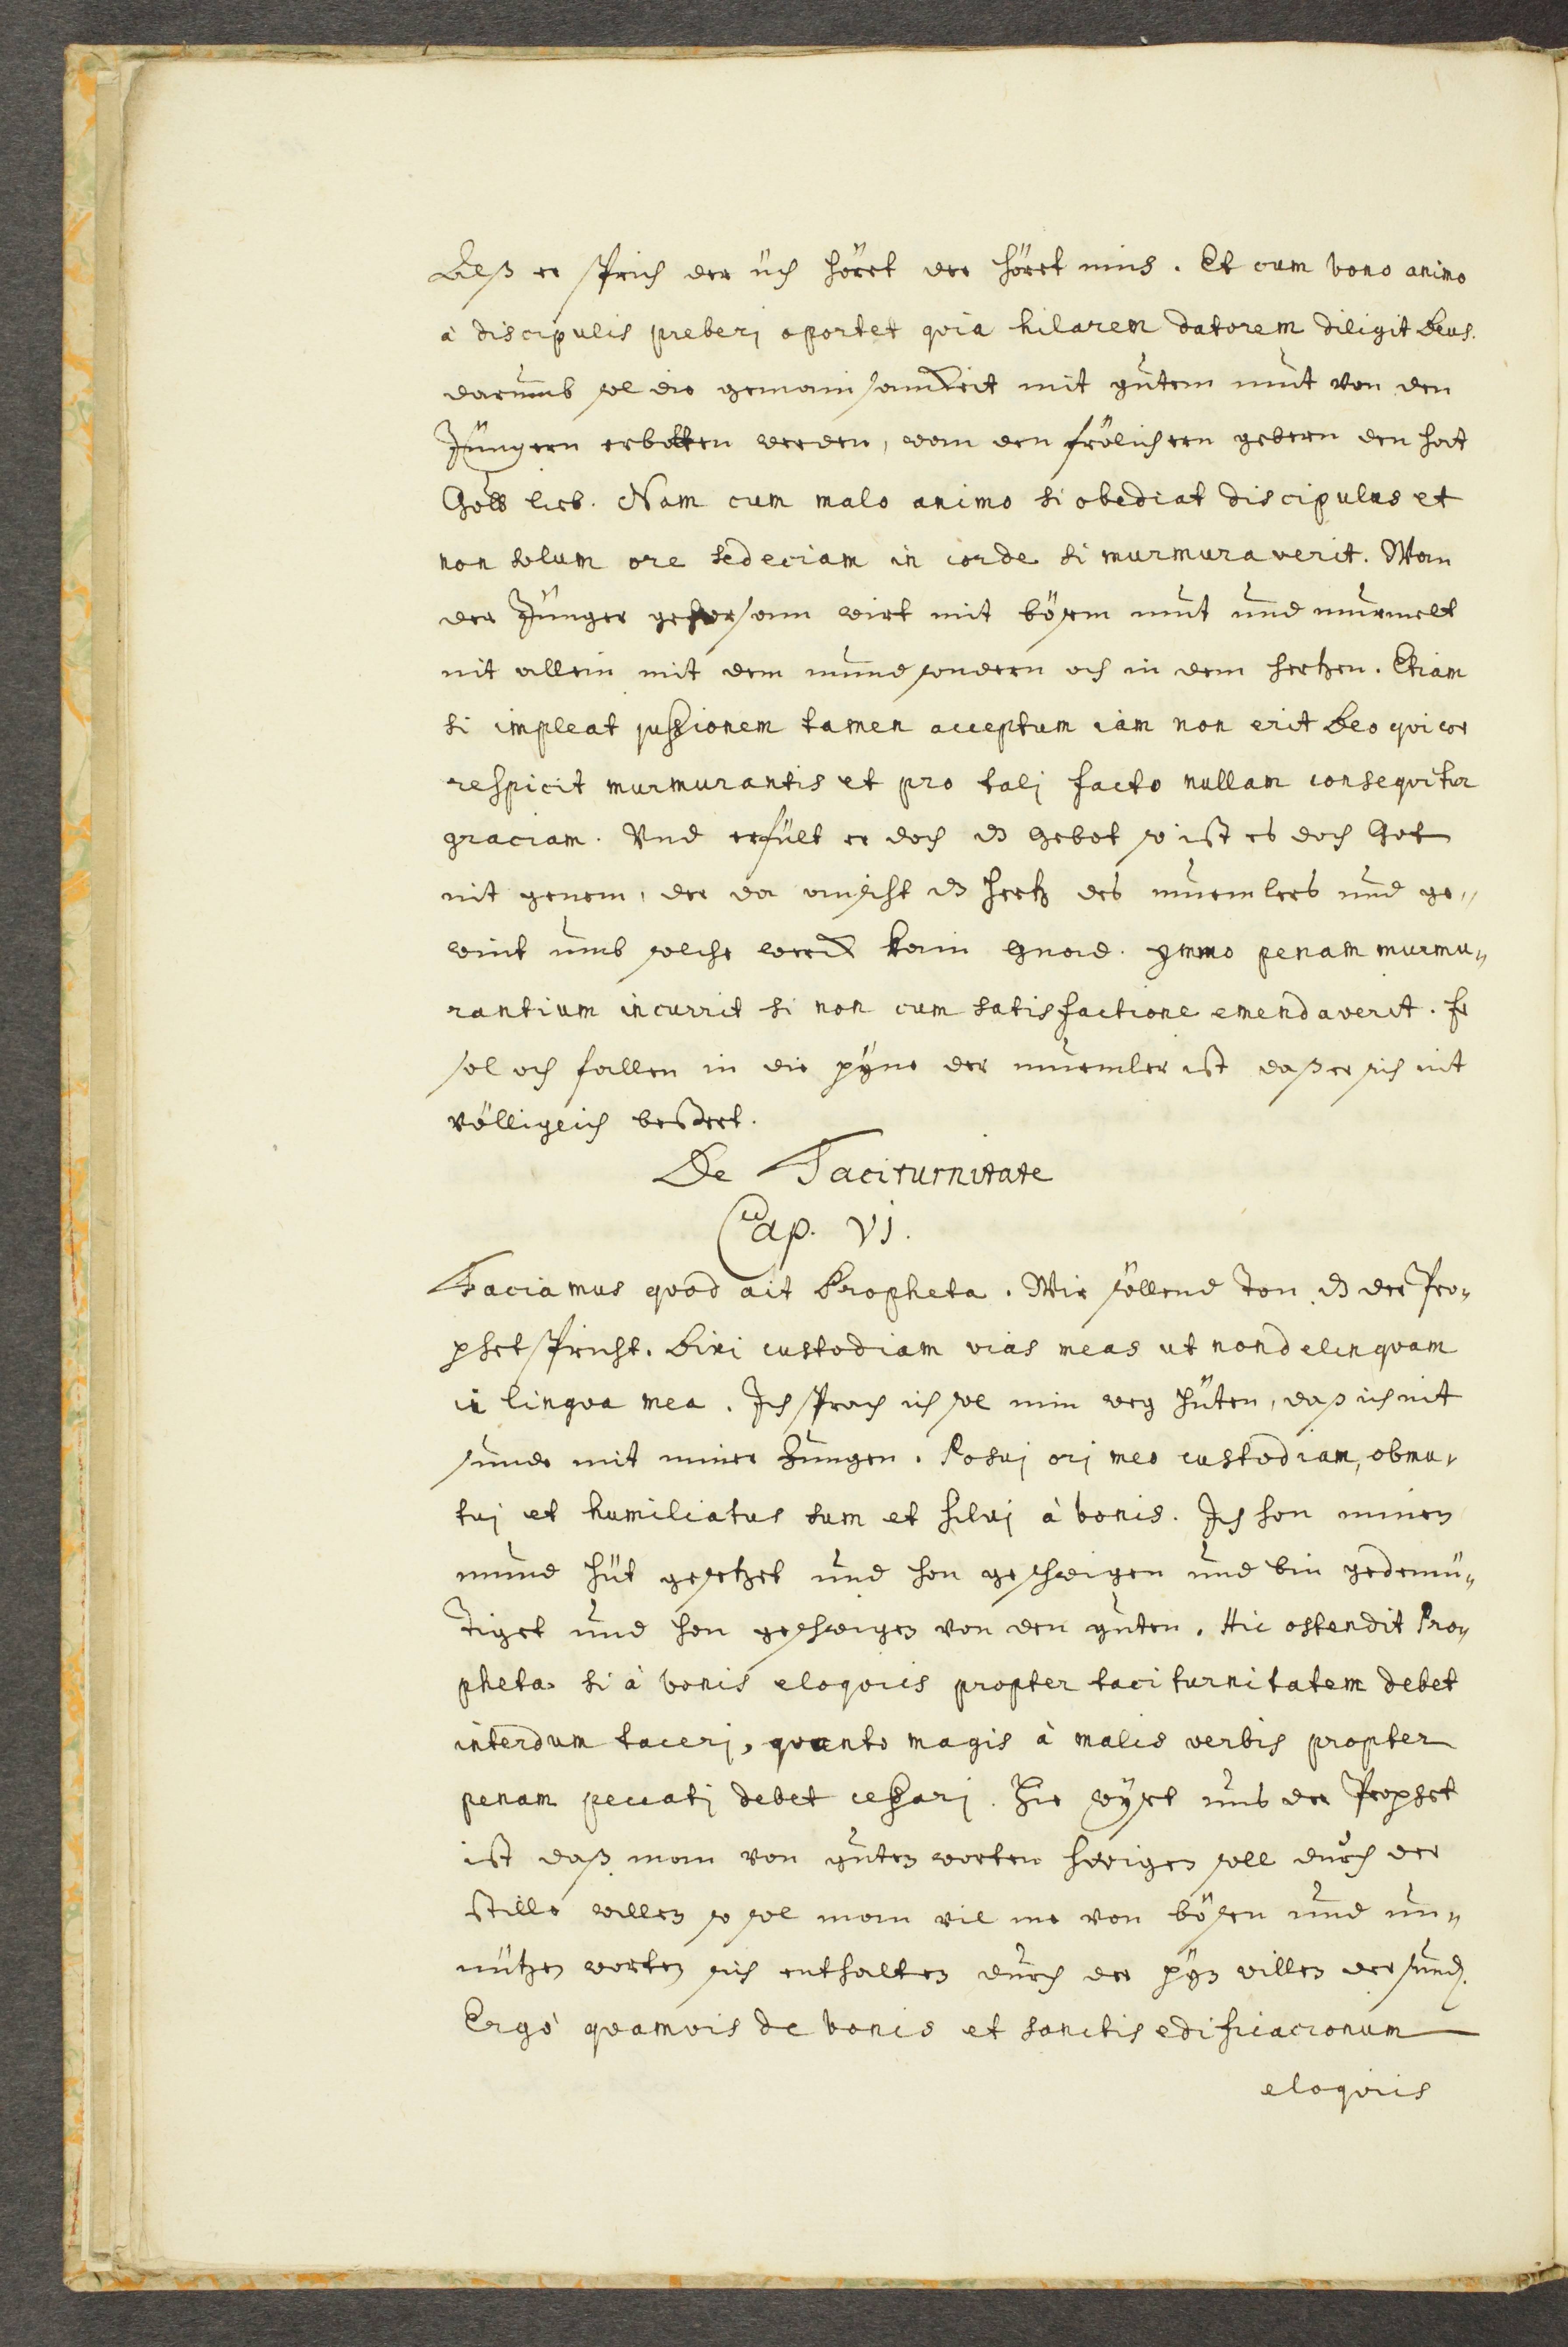 Deß er sprich der üch höret der höret mins. Et cum bono animo
à discipulis preberj oportet qvia hilarem datorem diligit Deus.
darumb sol die gemainsamkeit mit gutem mut von den
Jüngern erbotten werden, wan den frölichern gebern den hat
Gott lieb. Nam cum malo animo si obediat discipulus et
non solum ore sed eciam in corde si murmuraverit. Wan
der Jünger gehorsam wirt mit bösem mut und murmelt
nit allein mit dem mund sondern och in dem hertzen. Etiam
si impleat jussionem tamen acceptum iam non erit Deo qvi cor
respicit murmurantis et pro talj facto nullam conseqvitur
graciam. Vnd erfült er doch dz gebot so ist es doch Got
nit genem, der da ansicht dz hertz des murmlers und ge„
wint umb solche werck kain gnad. ymmo penam murmu„
rantium incurrit si non cum satisfactione emendaverit. Er
sol och fallen in die pyne der murmler ist daß er sich nit
völligeich bessert.
De Taciturnitate
Cap. VI.
Faciamus qvod ait Propheta. Wir söllend ton dz der Pro„
phet spricht. Dixi custodiam vias meas ut non delinqvam
in lingva mea. Ich sprach ich sol min weg hüten, daß ich nit
sunde mit miner Zungen. Posuj orj meo custodiam, obmu„
tuj et humiliatus sum et siluj à bonis. Ich hon minen
mund hüt gesetzet und hon geschweigen und bin gedemü„
tiget und hon geschweigen von den guten. Hic ostendit Pro„
pheta si à bonis eloqviis propter taciturnitatem debet
interdum tacerj, qvanto magis à malis verbis propter
penam peccatj debet cessarj. Hie wyset uns der Prophet
ist daß man von guten worten schweigen soll durch der
stille willen so sol man vil me von bösen und un„
nützen worten sich enthalten durch der pyn willen der sund.
Ergò qvamvis de bonis et sanctis edificacionum
eloqviis